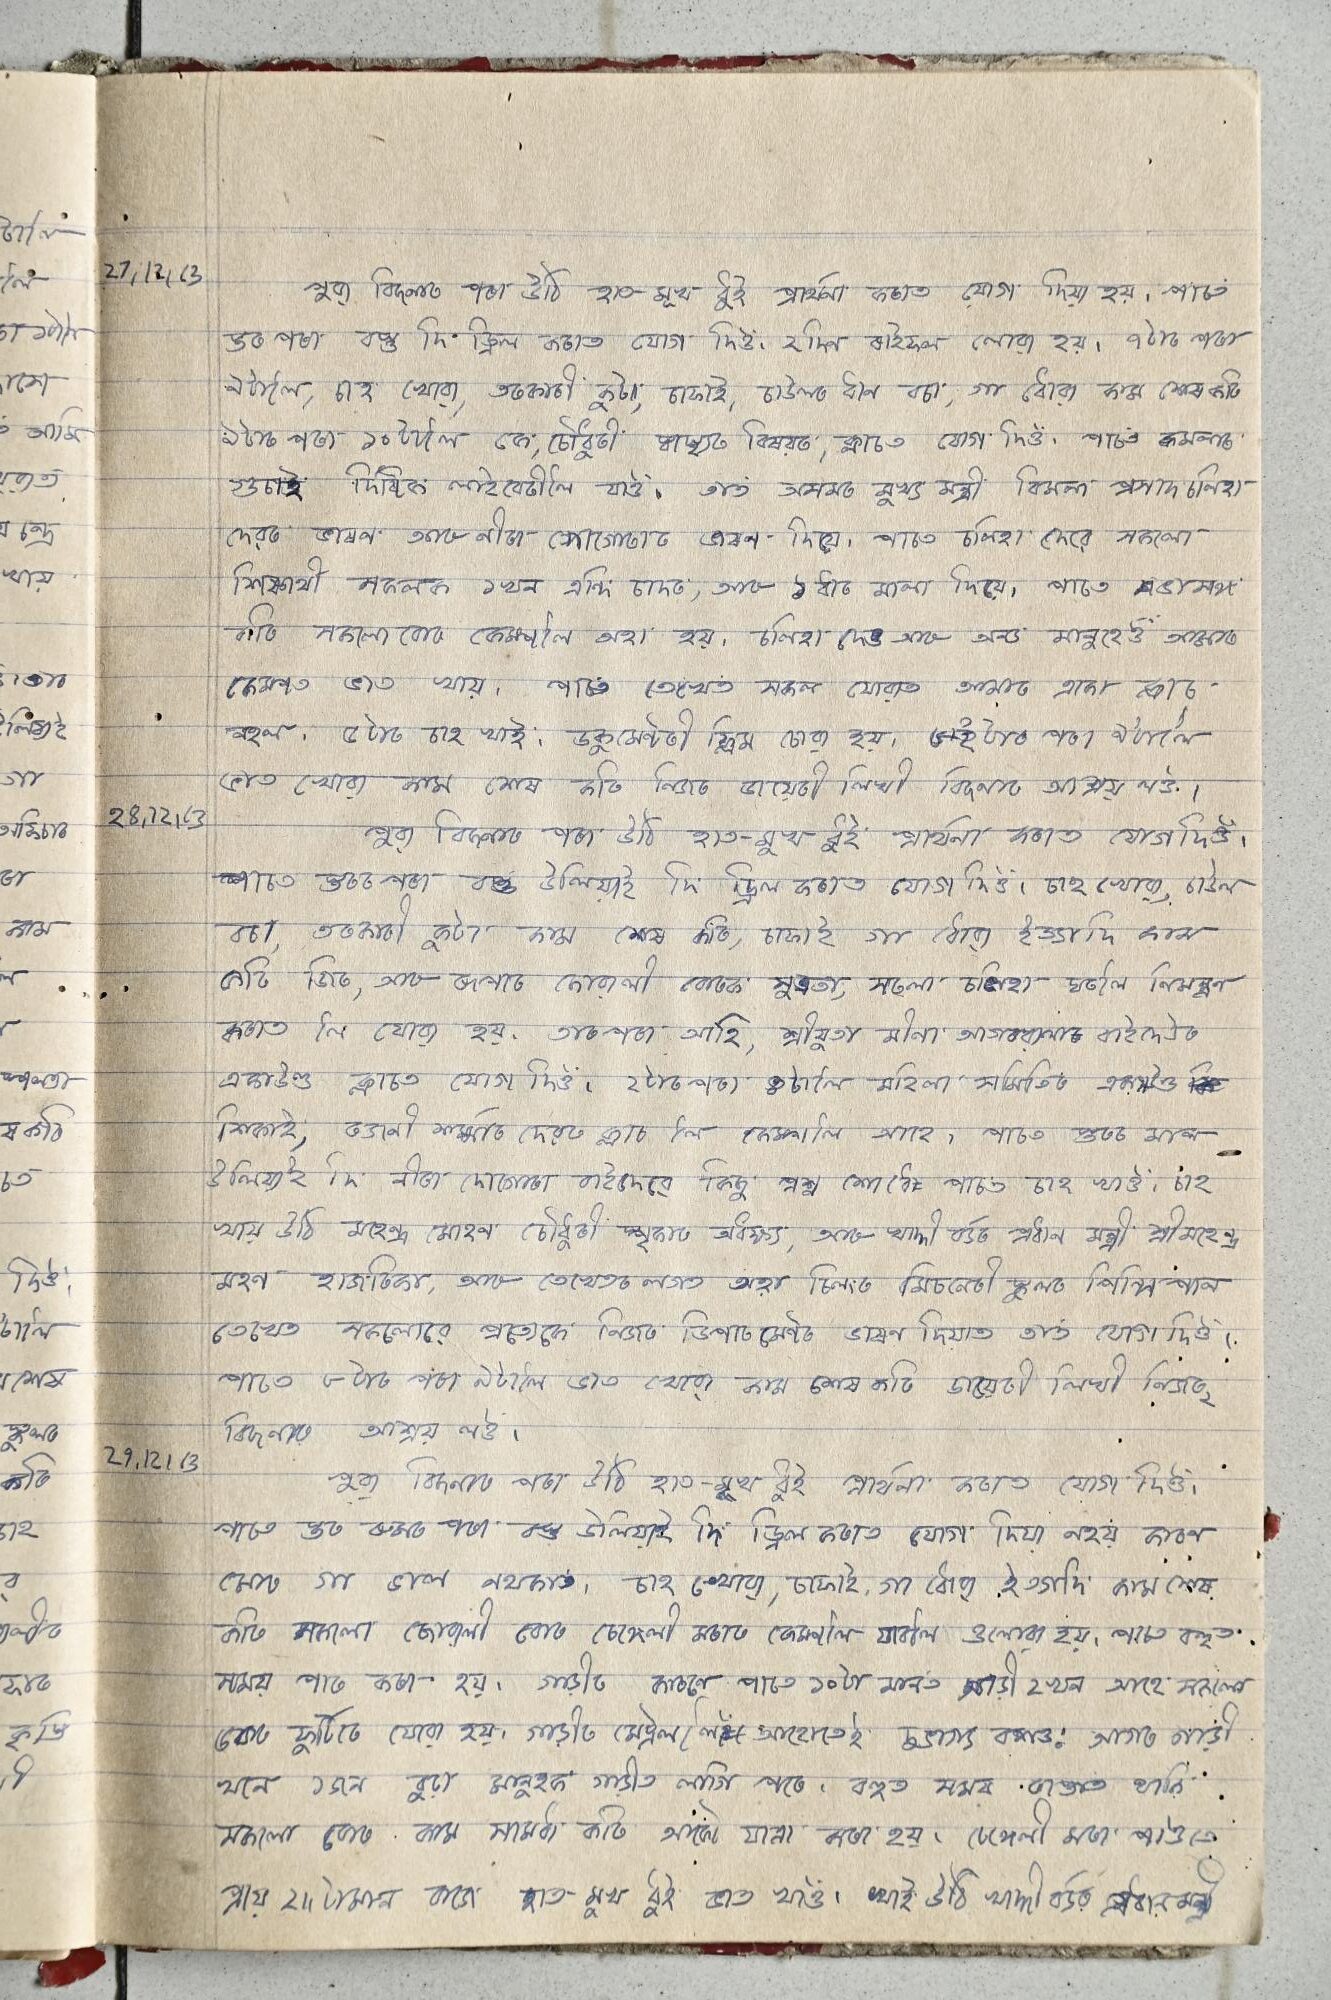 27/12/63
পুৱা বিচনাৰ পৰা উঠি হাত-মুখ ধুই প্ৰাৰ্থনা কৰাত যোগ দিয়া হয়। পাচত
ষ্টৰৰ পৰা বস্তু দি ড্ৰিল কৰাত যোগ দিওঁ। ২দিন ৰাইফল লোৱা হয়। ৭টাৰ পৰা
৯টালৈ, চাহ খোৱা, তৰকাৰী কুটা, চাফাই, চাউলৰ ধান বচা, গা ধোৱা কাম শেষ কৰি
৯টাৰ পৰা ১০টালৈ কে, চৌধুৰী স্বাস্থ্যৰ বিষয়ত, ক্লাচত যোগ দিওঁ। পাচত
লাইব্ৰেৰীলৈ যাওঁ। তাত অসমৰ মুখ্য মন্ত্ৰী বিমলা প্ৰসাদ চলিহা
দেৱৰ ভাষণ আৰু নীৰা ভাষণ দিয়ে। পাচত চলিহা দেৱে সকলো
শিক্ষাৰ্থী সকলক ১খন এন্দি চাদৰ, আৰু ১ধাৰ মালা দিয়ে। পাচত
কৰি সকলোবোৰ কেম্পলৈ অহা হয়। চলিহা দেৱ আৰু অন্য মানুহেও আমাৰ
কেম্পত ভাত খায়। পাচত তেখেত সকল যোৱাত আমাৰ একো ক্লাচ
নহল। ৫টাত চাহ খাই। ডকুমেণ্টৰী ফ্লিম চোৱা হয়। পৰা ৯টালৈ
ভাত খোৱা কাম শেষ কৰি নিজৰ ডায়েৰী লিখী বিচনাত আশ্ৰয় লওঁ।
28/12/63
পুৱা বিচনাৰ পৰা উঠি হাত-মুখ ধুই প্ৰাৰ্থনা কৰাত যোগদিওঁ।
পাচত ষ্টৰৰ পৰা বস্তু উলিয়াই দি ড্ৰিল কৰাত যোগ দিওঁ। চাহ খোৱা, চাউল
বচা, তৰকাৰী কুটা কাম শেষ কৰি, চাফাই গা ধোৱা ইত্যাদি কাম
কৰি জিৰ, আৰু ছোৱালী বোৰক সকলো চলিহা ঘৰলৈ নিমন্ত্ৰণ
কৰাত লৈ যোৱা হয়। তাৰ পৰা আহি, শ্ৰীযুতা মীনা আগৰৱালাৰ বাইদেউৰ
একাউণ্ড ক্লাচত যোগ দিওঁ। ২টাৰ পৰা মহিলা সমিতিৰ
শিকাই, ৰজনী শৰ্ম্মাৰ দেৱৰ ক্লাচ লৈ আহে। পাচত ষ্টৰৰ মাল
উলিয়াই দি নীৰা দোগোৰা বাইদেৱে কিছু প্ৰশ্ন পাচত চাহ খাওঁ। চাহ
খায় উঠি মহেন্দ্ৰ মোহন চৌধুৰী আৰু খাদ্দী বৰ্ডৰ প্ৰধান মন্ত্ৰী শ্ৰীমহেন্দ্ৰ
মহন হাজৰিকা, আৰু তেখেতৰ লগত অহা মিচনেৰী স্কুলৰ প্ৰিন্সিপাল
তেখেত সকলোৱে প্ৰত্যেকে নিজৰ ডিপাৰ্টমেণ্টৰ ভাষণ দিয়াত তাত যোগ দিওঁ।
পাচত ৮টাৰ পৰা ৯টালৈ ভাত খোৱা কাম শেষ কৰি ডায়েৰী লিখী নিজৰ
বিচনাত আশ্ৰয় লওঁ।
29/12/63
পুৱা বিচনাৰ পৰা উঠি হাত-মুখ ধুই প্ৰাৰ্থনা কৰাত যোগ দিওঁ।
পাচত ষ্টৰ ৰুমৰ পৰা বস্তু উলিয়াই দি ড্ৰিল কৰাত যোগ দিয়া নহয় কাৰণ
মোৰ গা ভাল নথকাত। চাহ খোৱা, চাফাই, গা ধোৱা ইত্যাদি কাম শেষ
কৰি সকলো ছোৱালী বোৰ চেঙ্গেলী মৰাৰ কেম্পলৈ যাবলৈ ওলোৱা হয়। পাচত বহুত
সময় পাৰ কৰা হয়। গাড়ীৰ কাৰণে পাচত ১০টা মানত গাড়ী ২খন আহে সকলো
বোৰ ফুৰ্টিৰে যোৱা হয়। গাড়ীৰ আগৰ গাড়ী
খনে ১জন বুঢ়া মানুহক গাড়ীত লাগি পৰে। বহুত সময় ৰাস্তাত থাকি
সকলো বোৰ কাম সামৰা কৰি আকৌ যাত্ৰা কৰা হয়। চেঙ্গেলী মৰা পাওঁতে
প্ৰায় ২॥ টামান বাজে হাত-মুখ ধুই ভাত খাওঁ। খাই উঠি খাদ্দী বৰ্ডৰ প্ৰধান মন্ত্ৰী